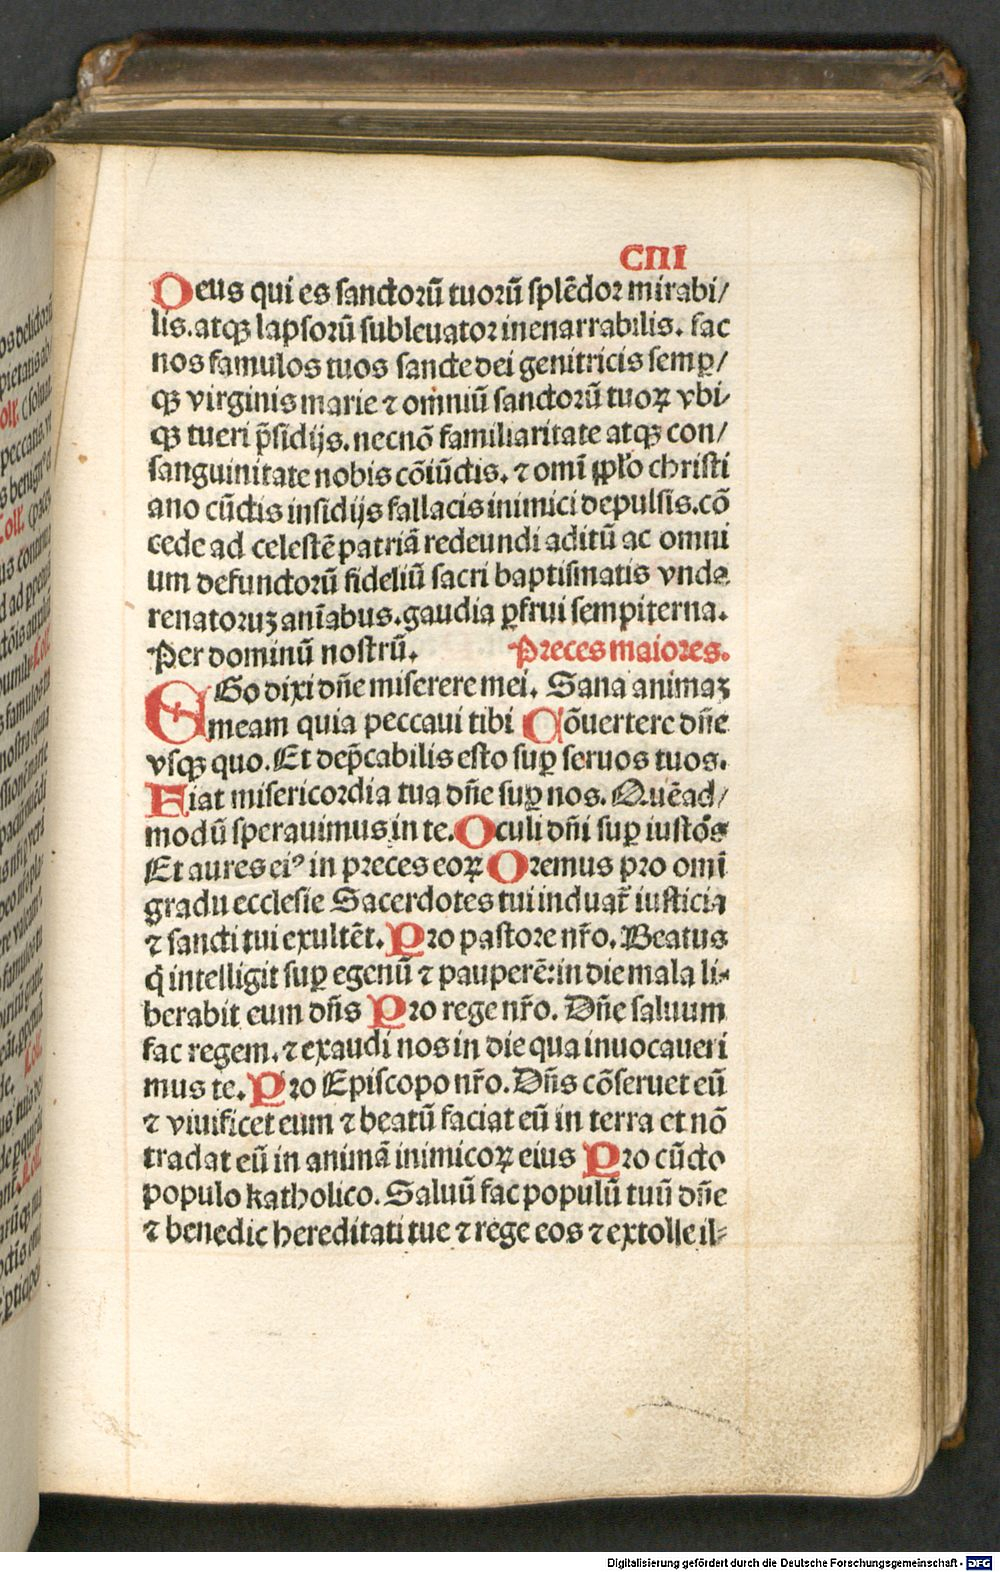 CIII
Deus qui es sanctorū tuorū splēdor mirabi/
lis. atqꝫ lapsorū subleuator inenarrabilis. fac
nos famulos tuos sancte dei genitricis semꝑ/
qꝫ virginis marie ⁊ omniū sanctorū tuoꝝ vbi/
qꝫ tueri p̄sidijs. necnō familiaritate atqꝫ con/
sanguinitate nobis cōiūctis. ⁊ omī ppl'o christi
ano cūctis insidijs fallacis inimici depulsis. cō
cede ad celestē patriā redeundi aditū ac omni
um defunctorū fideliū sacri baptismatis vnda
renatoruꝫ anīabus. gaudia ꝑfrui sempiterna.
Per dominū nostrū. Preces maiores.
EGo dixi dn̄e miserere mei. Sana animaꝫ
meam quia peccaui tibi Cōuertere dn̄e
vsqꝫ quo. Et dep̄cabilis esto suꝑ seruos tuos.
Fiat misericordia tua dn̄e suꝑ nos. Quēad/
modū sperauimus in te. Oculi dn̄i suꝑ iustōs
Et aures ei⁹ in preces eoꝝ Oremus pro omī
gradu ecclesie Sacerdotes tui induāt iusticia
⁊ sancti tui exultēt. Pro pastore nr̄o. Beatus
q̄ intelligit suꝑ egenū ⁊ pauperē: in die mala li-
berabit eum dn̄s Pro rege nr̄o. Dn̄e saluum
fac regem. ⁊ exaudi nos in die qua inuocaueri
mus te. Pro Episcopo nr̄o. Dn̄s cōseruet eū
⁊ viuificet eum ⁊ beatū faciat eū in terra et nō
tradat eū in animā inimicoꝝ eius Pro cūcto
populo katholico. Saluū fac populū tuū dn̄e
⁊ benedic hereditati tue ⁊ rege eos ⁊ extolle il-
Digitalisierung gefördert durch die Deutsche Forschungsgemeinschaft - DFG